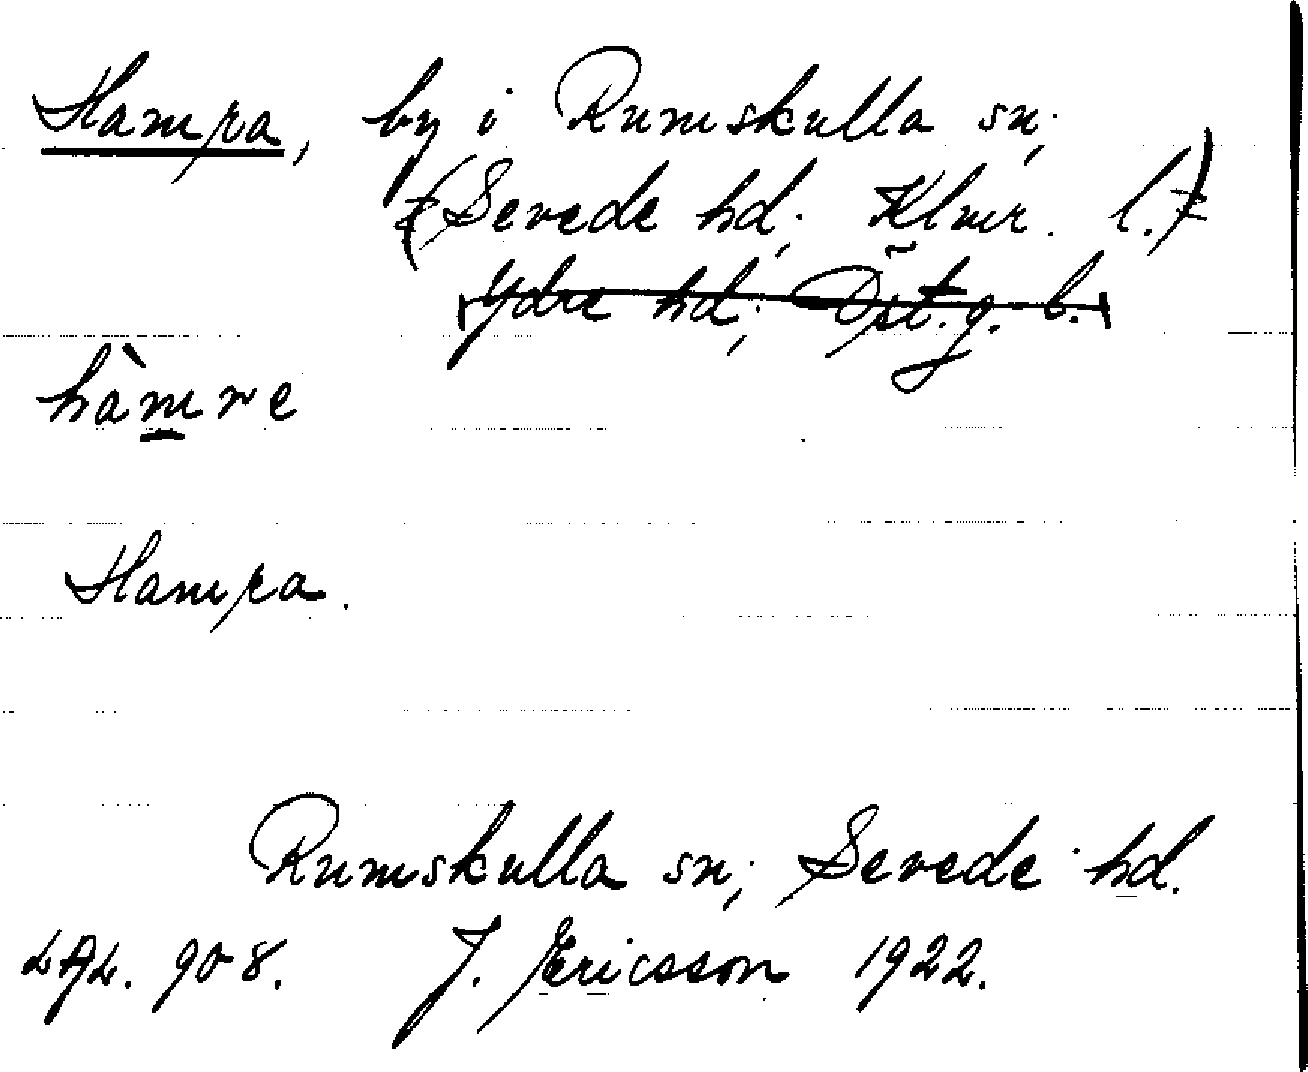 Hampa, by i Rumskulla sn;
(Sevede hd; Klmr. l.)
Ydre hd; Öst.g. l.
hàmre
Hampa.
Rumskulla sn; Sevede hd.
908. J. Ericsson 1922.